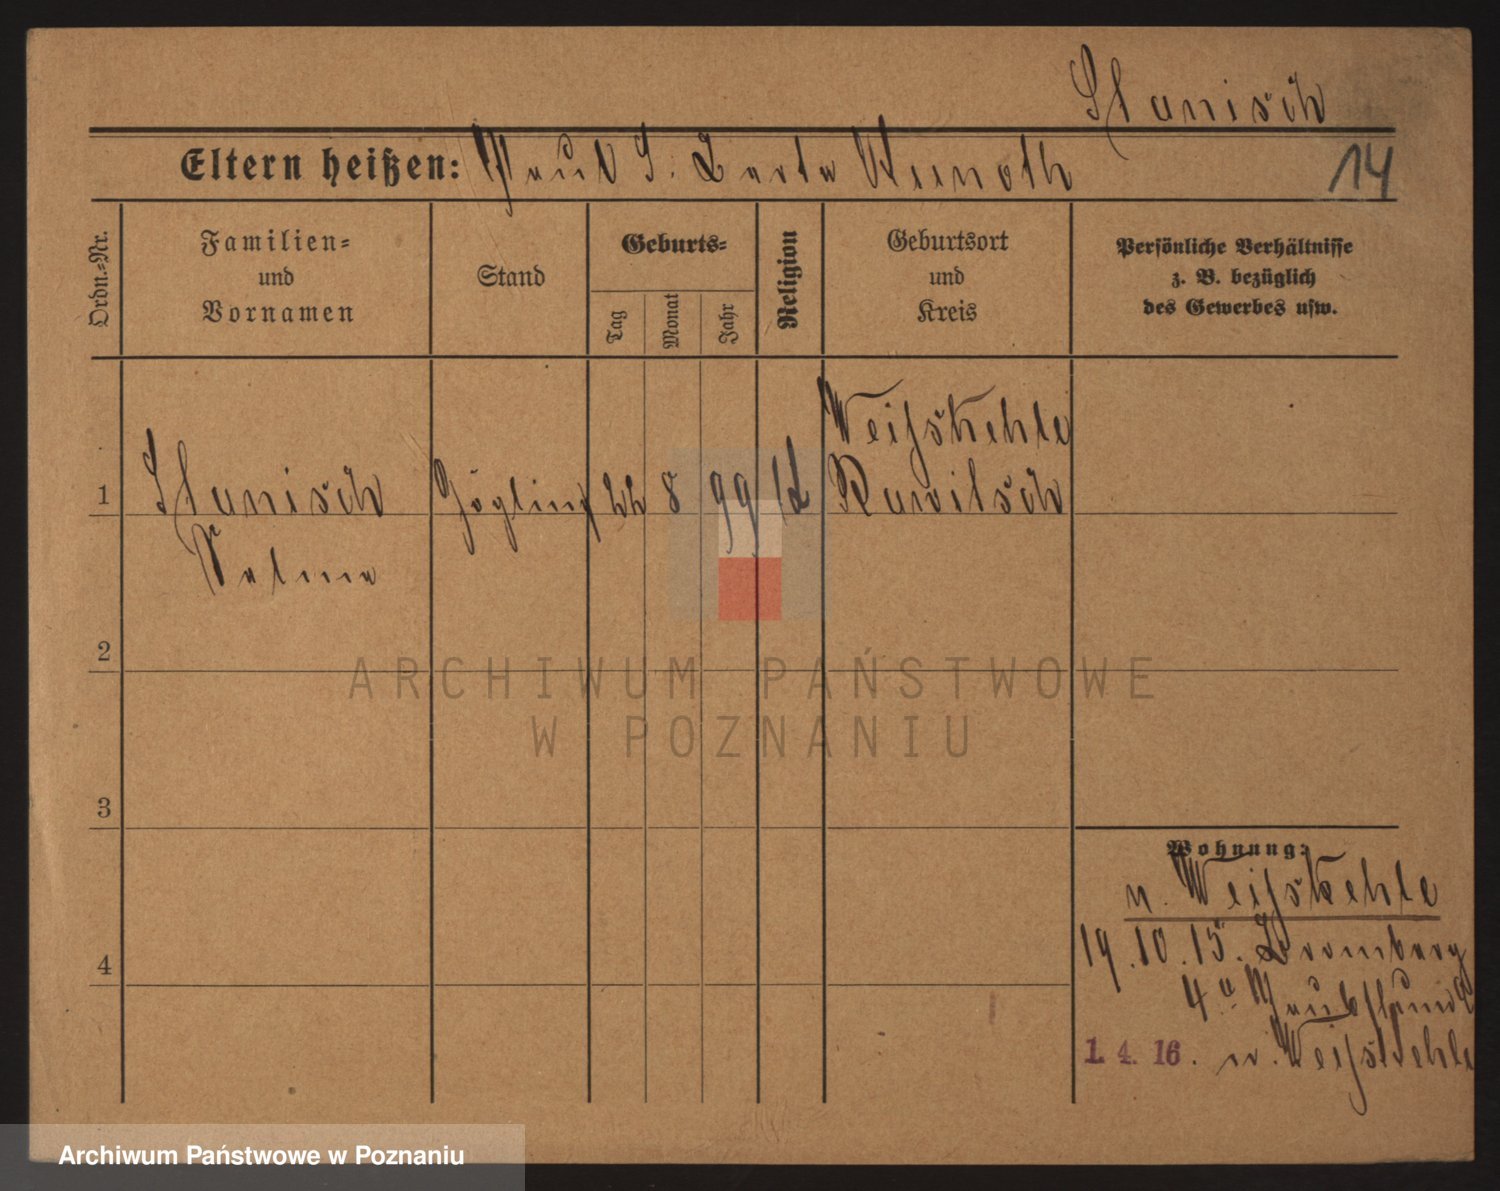 Stanisch
Eltern heißen: Paul S. Berta Weinoth
14
Ordn.=Nr.
Familien=
und
Vornamen
Stand
Geburts=
Tag
Monat
Jahr
Religion
Geburtsort
und
Kreis
Persönliche Verhältnisse
z. B. bezüglich
des Gewerbes usw.
Weißkehle
1 Stanisch Zögling 22 8 99 Rawitsch
Selma
2
3
4
Wohnung:
n. Weißkehle
19.10.15. Bromberg
4a
1. 4. 16. n. Weißkehle
ARCHIWUM PAŃSTWOWE
W POZNANIU
Archiwum Państwowe w Poznaniu